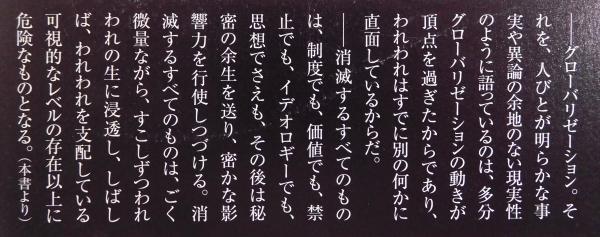 ――グローバリゼーション。そ
れを、人びとが明らかな事
実や異論の余地のない現実性
のように語っているのは、多分
グローバリゼーションの動きが
頂点を過ぎたからであり、
われわれはすでに別の何かに
直面しているからだ。
――消滅するすべてのもの
は、制度でも、価値でも、禁
止でも、イデオロギーでも、
思想でさえも、その後は秘
密の余生を送り、密かな影
響力を行使しつづける。消
滅するすべてのものは、ごく
微量ながら、すこしずつわれ
われの生に浸透し、しばし
ば、われわれを支配している
可視的なレベルの存在以上に
危険なものとなる。(本書より)